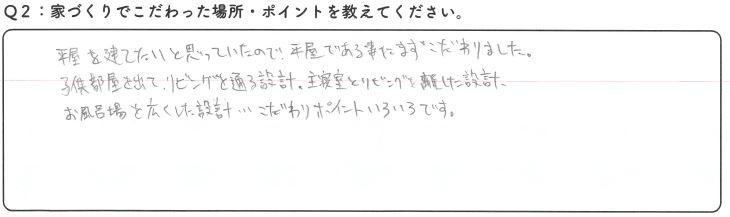 Q2：家づくりでこだわった場所・ポイントを教えてください。
平屋を建てたいと思っていたので、平屋である事にまずこだわりました。
子供部屋を出て、リビングを通る設計。主寝室とリビングを離した設計、
お風呂場を広くした設計…こだわりポイントいろいろです。